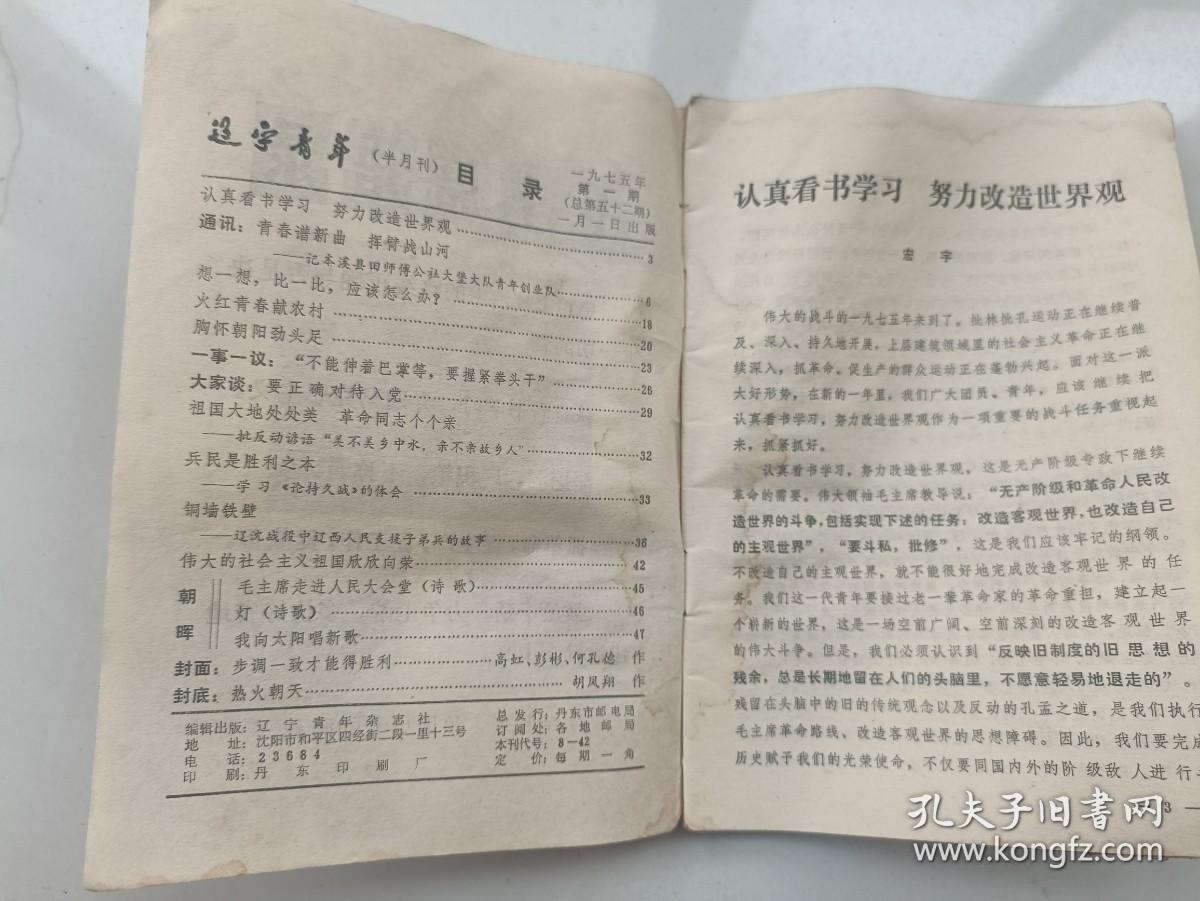 辽宁青年（半月刊） 目 录
一九七五年
第一期
（总第五十二期）
一月一日出版
认真看书学习 努力改造世界观……3
通讯：青春谱新曲 挥臂战山河
——记本溪县田师傅公社大堡大队青年创业队……6
想一想，比一比，应该怎么办？……18
火红青春献农村……20
胸怀朝阳劲头足……23
一事一议：“不能伸着巴掌等，要握紧拳头干”……26
大家谈：要正确对待入党……29
祖国大地处处美 革命同志个个亲
——批反动谚语“美不美乡中水，亲不亲故乡人”……32
兵民是胜利之本
——学习《论持久战》的体会……33
铜墙铁壁
——辽沈战役中辽西人民支援子弟兵的故事……36
伟大的社会主义祖国欣欣向荣……42
朝晖
毛主席走进人民大会堂（诗歌）……45
灯（诗歌）……46
我向太阳唱新歌……47
封面：步调一致才能得胜利……高虹、彭彬、何孔德 作
封底：热火朝天……胡凤翔 作
编辑出版：辽宁青年杂志社
地 址：沈阳市和平区四经街二段一里十三号
电 话：23684
印 刷：丹东印刷厂
总发行：丹东市邮电局
订阅处：各地邮局
本刊代号：8—42
定 价：每期一角
认真看书学习 努力改造世界观
宏 宇
伟大的战斗的一九七五年来到了。批林批孔运动正在继续普
及、深入、持久地开展，上层建筑领域里的社会主义革命正在继
续深入，抓革命、促生产的群众运动正在蓬勃兴起。面对这一派
大好形势，在新的一年里，我们广大团员、青年，应该继续把
认真看书学习，努力改造世界观作为一项重要的战斗任务重视起
来，抓紧抓好。
认真看书学习，努力改造世界观，这是无产阶级专政下继续
革命的需要。伟大领袖毛主席教导说：“无产阶级和革命人民改
造世界的斗争，包括实现下述的任务：改造客观世界，也改造自己
的主观世界”，“要斗私，批修”，这是我们应该牢记的纲领。
不改造自己的主观世界，就不能很好地完成改造客观世界的任
务。我们这一代青年要接过老一辈革命家的革命重担，建立起一
个崭新的世界，这是一场空前广阔、空前深刻的改造客观世界
的伟大斗争。但是，我们必须认识到“反映旧制度的旧思想的
残余，总是长期地留在人们的头脑里，不愿意轻易地退走的”。
残留在头脑中的旧的传统观念以及反动的孔孟之道，是我们执行
毛主席革命路线、改造客观世界的思想障碍。因此，我们要完成
历史赋予我们的光荣使命，不仅要同国内外的阶级敌人进行
3 —
孔夫子旧书网
www.kongfz.com